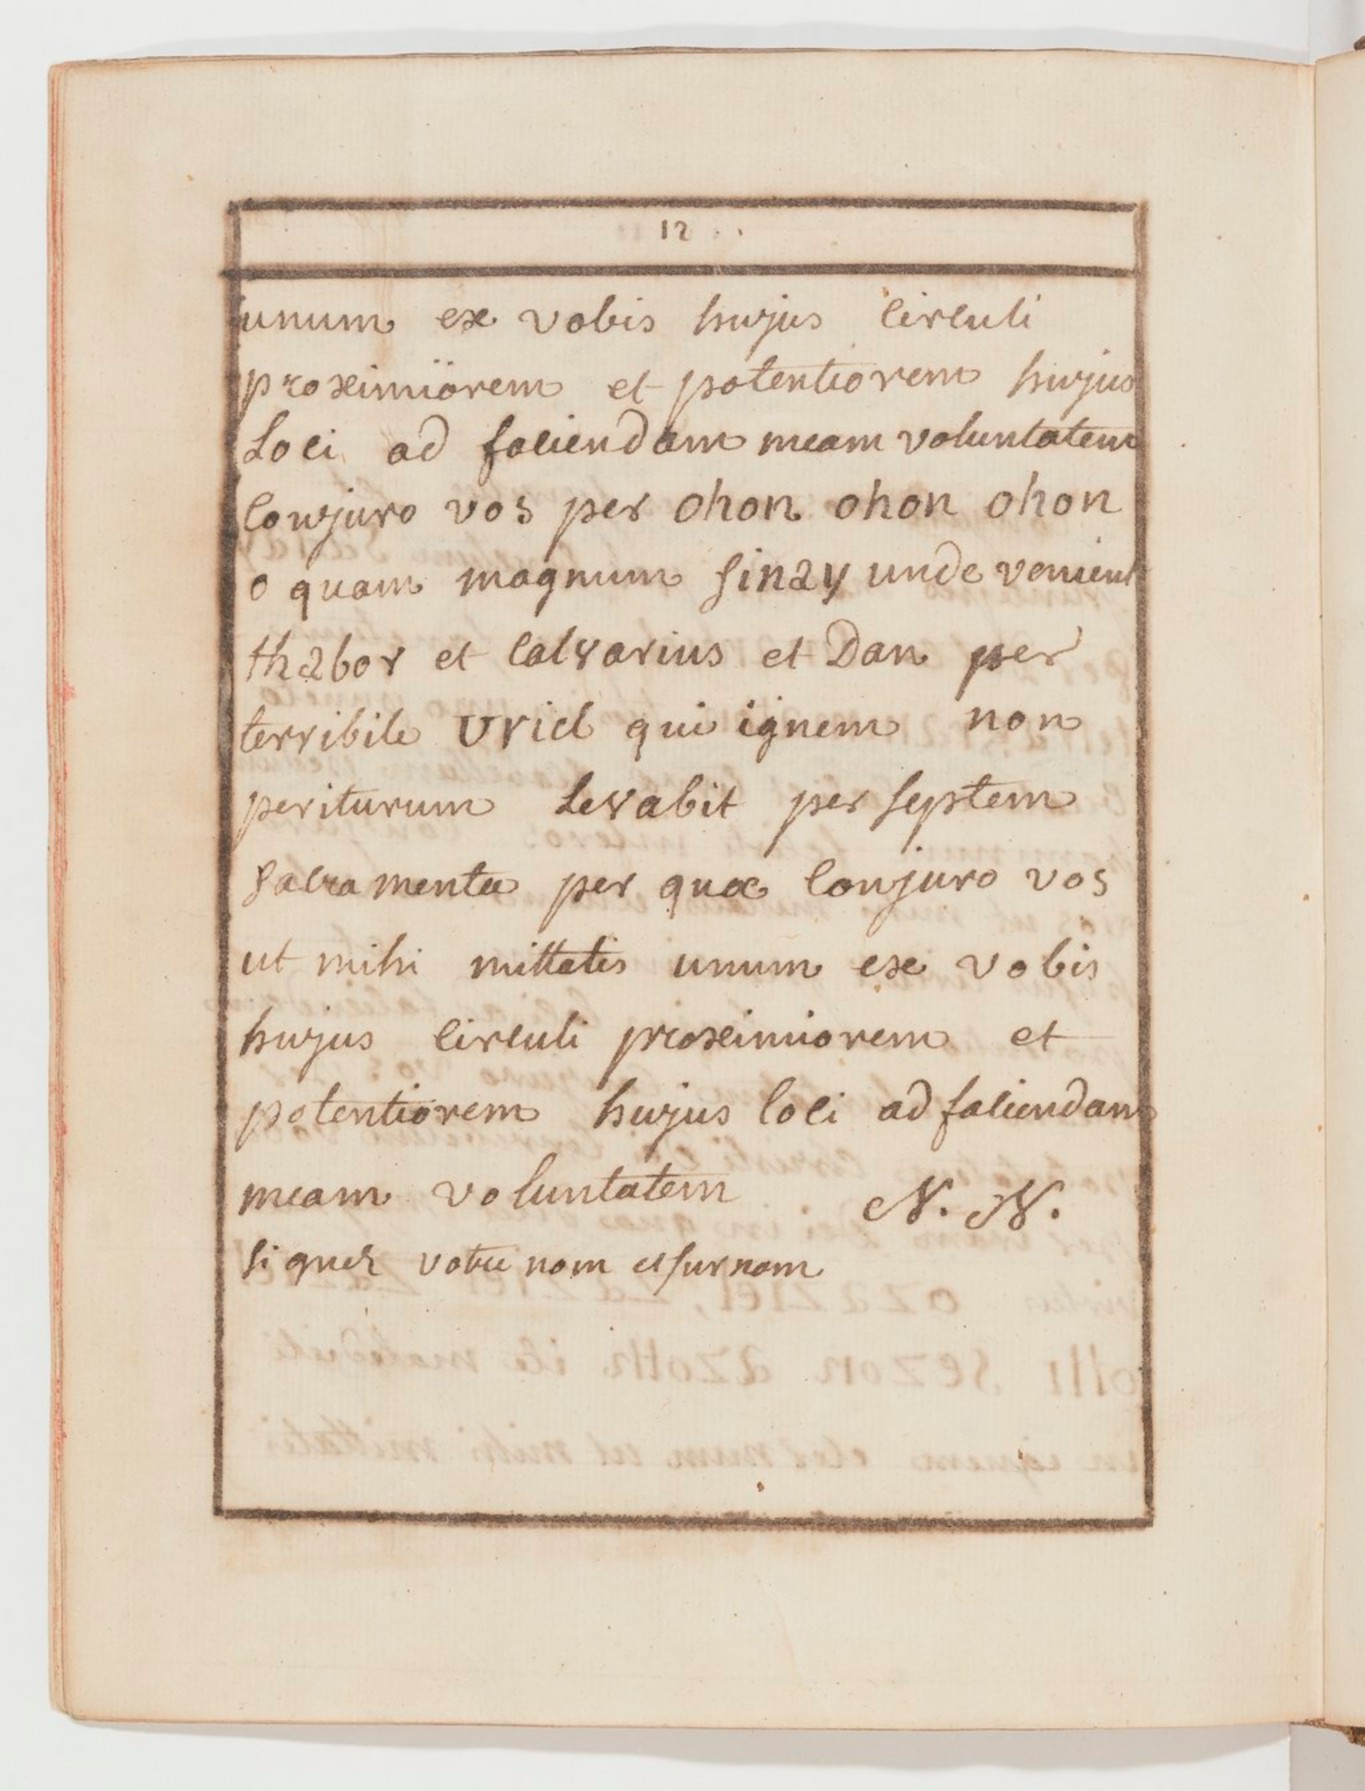 12
unum ex vobis hujus circuli
proximiorem et potentiorem hujus
Loci ad faciendam meam voluntatem
Conjuro vos per ohon ohon ohon
o quam magnum sinay unde venient
thabor et Calvarius et Dan per
terribile Uriel qui ignem non
periturum Levabit per septem
sacramenta per quæ Conjuro vos
ut mihi mittatis unum ex vobis
hujus circuli proximiorem et
potentiorem hujus loci ad faciendam
meam voluntatem N. N.
signez votre nom et surnom